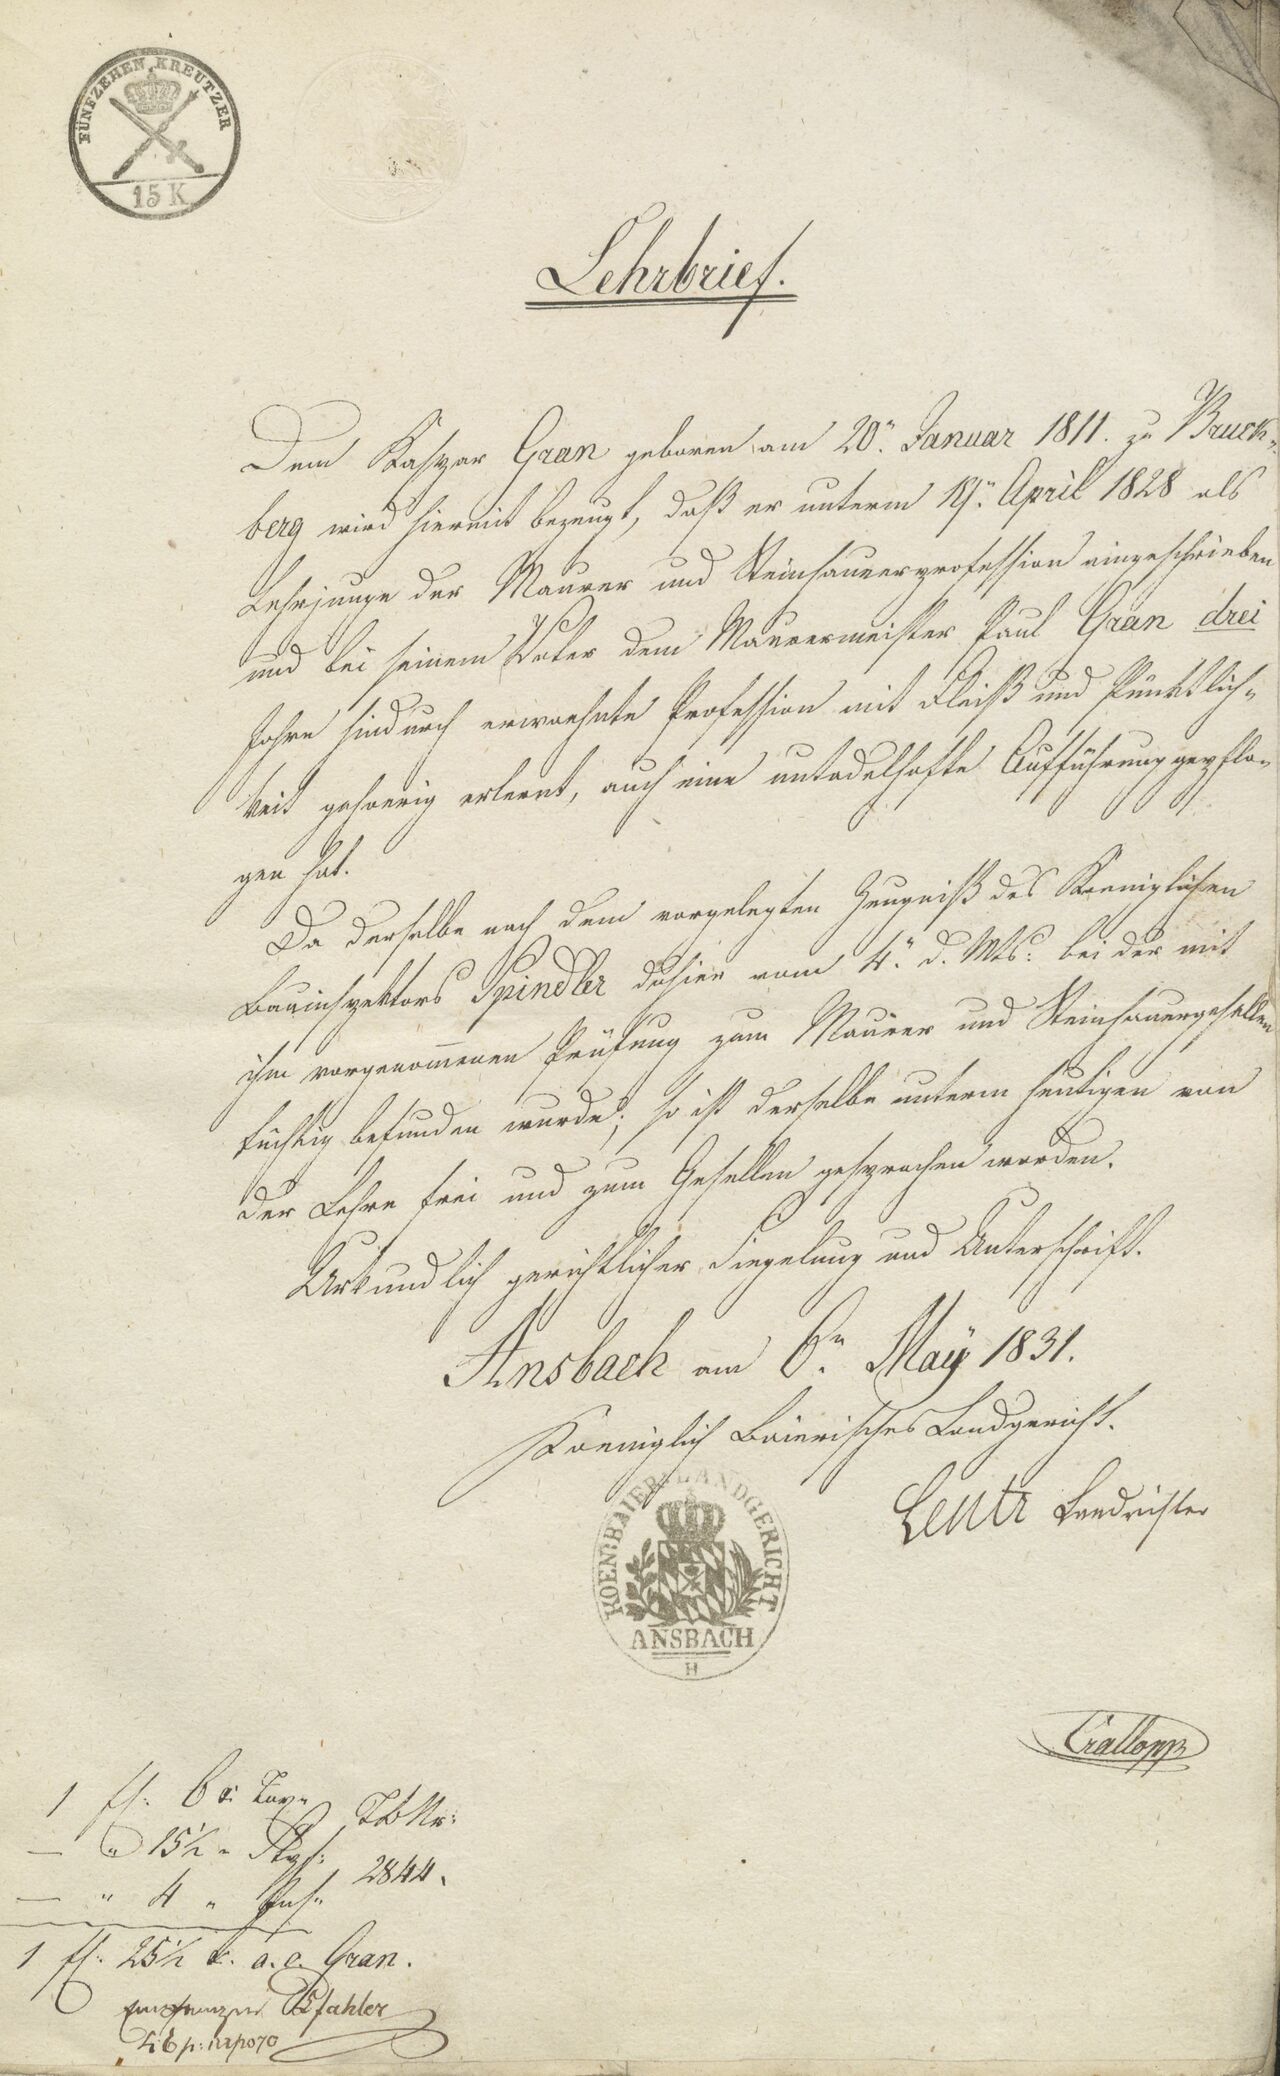 FÜNFZEHEN KREUTZER
15 K
Lehrbrief.
Dem Kaspar Gran geboren am 20n. Januar 1811. zu Bruck-
berg wird hiermit bezeugt, daß er unterm 19n. April 1828 als
Lehrjunge der Maurer und Steinhauerprofession eingeschrieben
und bei seinem Vater dem Maurermeister Paul Gran drei
Jahre hindurch erwaehnte Profession mit Fleiß und Pünktlich-
keit gehoerig erlernt, auch eine untadelhafte Aufführung gepflo-
gen hat.
Da derselbe nach dem vorgelegten Zeugniß des Koeniglichen
Bauinspektors Spindler dahier vom 4n. d. Mts. bei der mit
ihm vorgenommenen Prüfung zum Maurer und Steinhauergesellen
tüchtig befunden wurde; so ist derselbe unterm heutigen von
der Lehre frei und zum Gesellen gesprochen worden.
Urkundlich gerichtlicher Siegelung und Unterschrift.
Ansbach am 6n. Maÿ 1831.
Koeniglich Baierisches Landgericht.
Lentz Landrichter
KOEN: BAIER: LANDGERICHT
ANSBACH
H
1 fl. 6 x. Tax.
TbNr:
— " 15½ "
2844.
— " 4 "
1 fl. 25½ x. a. o. Gran.
Pfahler